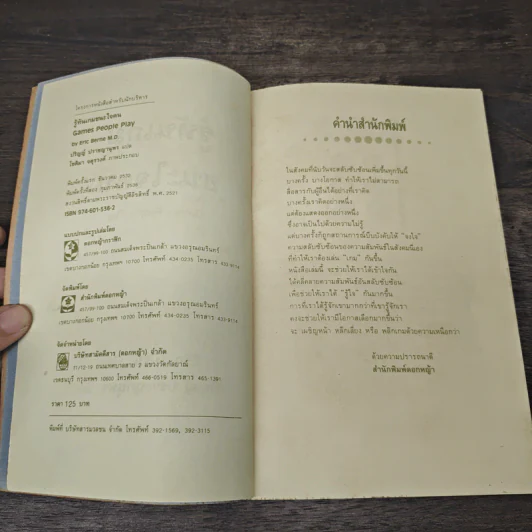 โครงการหนังสือสำหรับนักบริหาร
รู้ทันเกมชนะใจคน
Games People Play
by Eric Berne M.D.
ปริญญ์ ปราชญานุพร แปล
โชติมา จตุรวงค์ ภาพประกอบ
พิมพ์ครั้งแรก ธันวาคม 2532
พิมพ์ครั้งที่สอง กุมภาพันธ์ 2539
สงวนลิขสิทธิ์ตามพระราชบัญญัติลิขสิทธิ์ พ.ศ. 2521
ISBN 978-601-538-2
แบบปกและรูปเล่มโดย
ดอกหญ้ากราฟิก
ถนนสมเด็จพระปิ่นเกล้า แขวงอรุณอมรินทร์
เขตบางกอกน้อย กรุงเทพฯ 10700 โทรศัพท์ 434-0235 โทรสาร 433-9114
จัดพิมพ์โดย
สำนักพิมพ์ดอกหญ้า
ถนนสมเด็จพระปิ่นเกล้า แขวงอรุณอมรินทร์
เขตบางกอกน้อย กรุงเทพฯ 10700 โทรศัพท์ 434-0235 โทรสาร 433-9114
จัดจำหน่ายโดย
บริษัทสามัคคีสาร (ดอกหญ้า) จำกัด
31/13-19 ถนนเทอดไท ซอย 3 แขวงวัดกัลยาณ์
เขตธนบุรี กรุงเทพฯ 10600 โทรศัพท์ 466-0519 โทรสาร 465-1391
ราคา 125 บาท
พิมพ์ที่ บริษัทสารมวลชน จำกัด โทรศัพท์ 392-1569, 392-3115
คำนำสำนักพิมพ์
ในสังคมที่นับวันจะสลับซับซ้อนเพิ่มขึ้นทุกวันนี้
บางครั้ง บางโอกาส ทำให้เราไม่สามารถ
สื่อสารกับผู้อื่นได้อย่างที่เราคิด
บางครั้งเราคิดอย่างหนึ่ง
แต่ต้องแสดงออกอย่างหนึ่ง
ซึ่งอาจเป็นไปด้วยความไม่รู้
แต่บางครั้งก็ถูกสถานการณ์บีบบังคับให้ "จงใจ"
ความสลับซับซ้อนของความสัมพันธ์ในสังคมนี่เอง
ที่ทำให้เราต้องเล่น "เกม" กันขึ้น
หนังสือเล่มนี้ จะช่วยให้เราได้เข้าใจกัน
ได้คลี่คลายความสัมพันธ์อันสลับซับซ้อน
เพื่อช่วยให้เราได้ "รู้ใจ" กันมากขึ้น
การที่เราได้รู้จักเขามากกว่าที่เขารู้จักเรา
คงจะช่วยให้เรามีโอกาสเลือกมากขึ้นว่า
จะ เผชิญหน้า หลีกเลี่ยง หรือ พลิกเกมด้วยความเหนือกว่า
ด้วยความปรารถนาดี
สำนักพิมพ์ดอกหญ้า